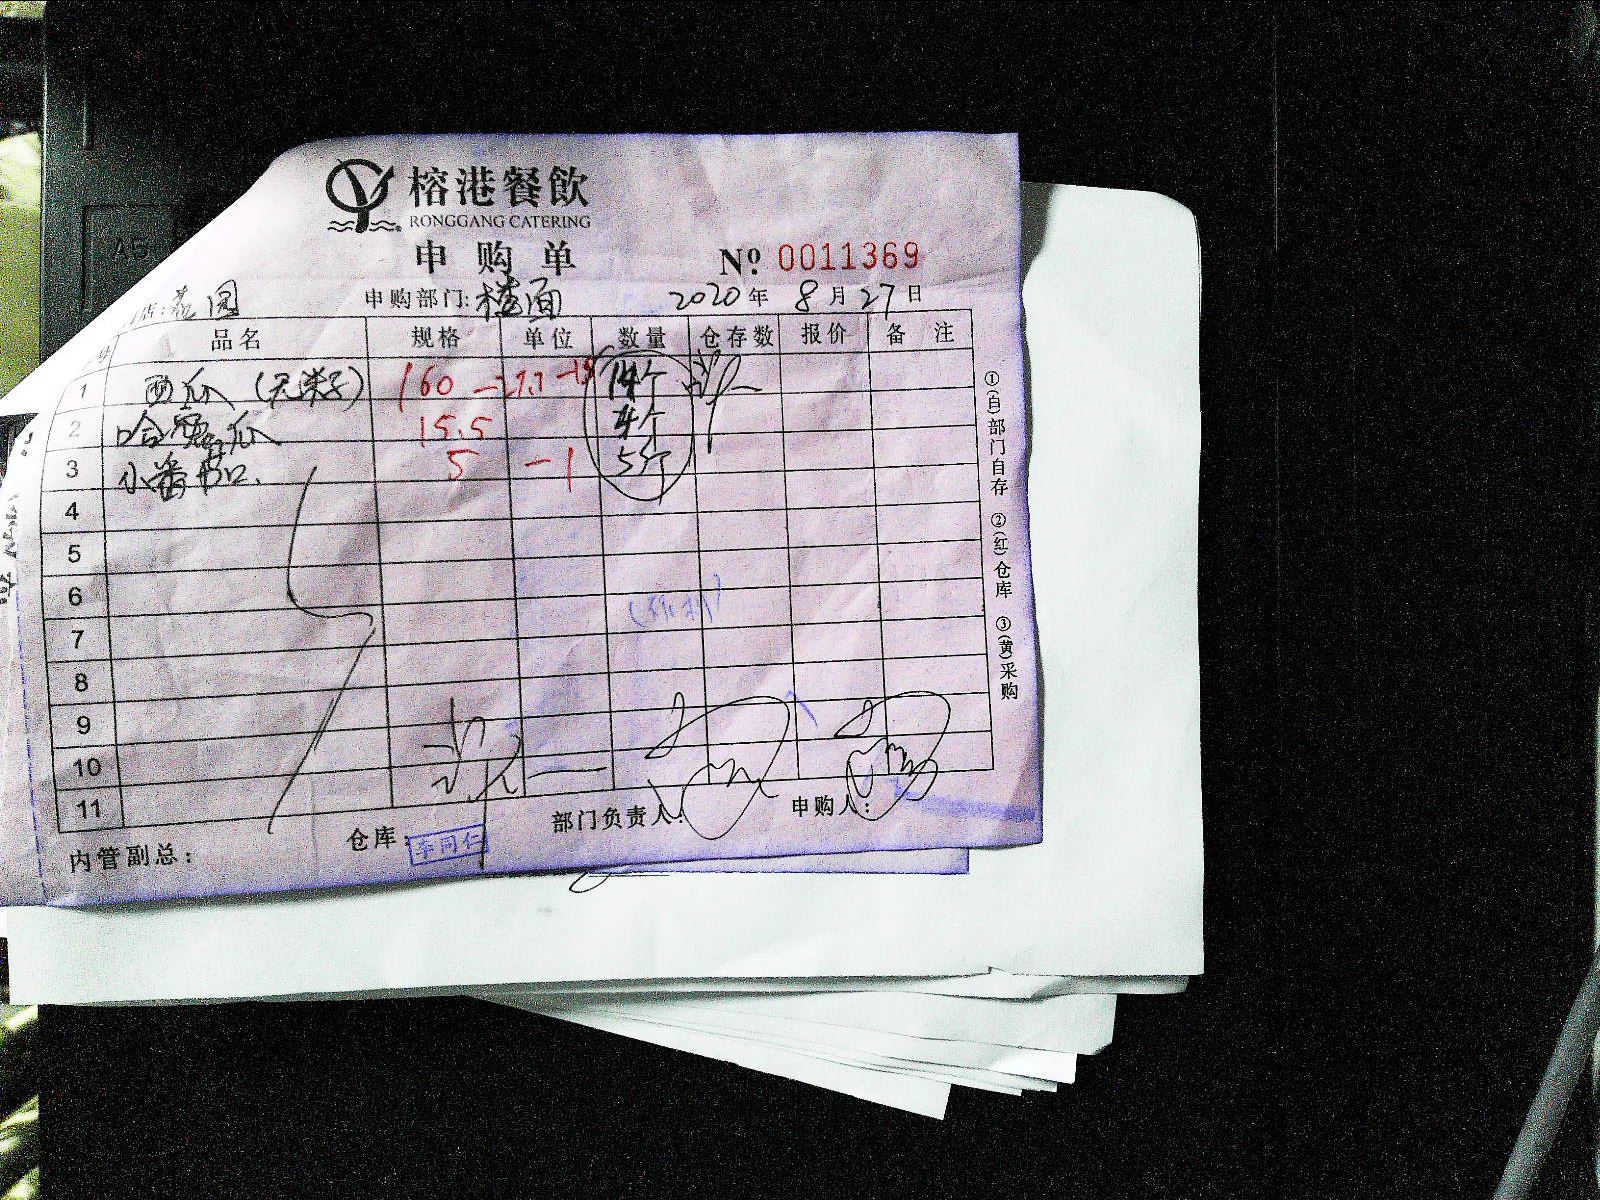 榕港餐飲
RONGGANG CATERING
申购单
№ 0011369
店: 园 申购部门: 楼面 2020年 8月 27日
品名 规格 单位 数量 仓存数 报价 备 注
1 西瓜 (无籽) 160 14个
2 哈蜜瓜 15.5 4个
3 小番 5 -1 5斤
4
5
6
7
8
9
10
11
内管副总: 仓库: 李同仁 部门负责人: 申购人:
①(白)部门自存 ②(红)仓库 ③(黄)采购
A5